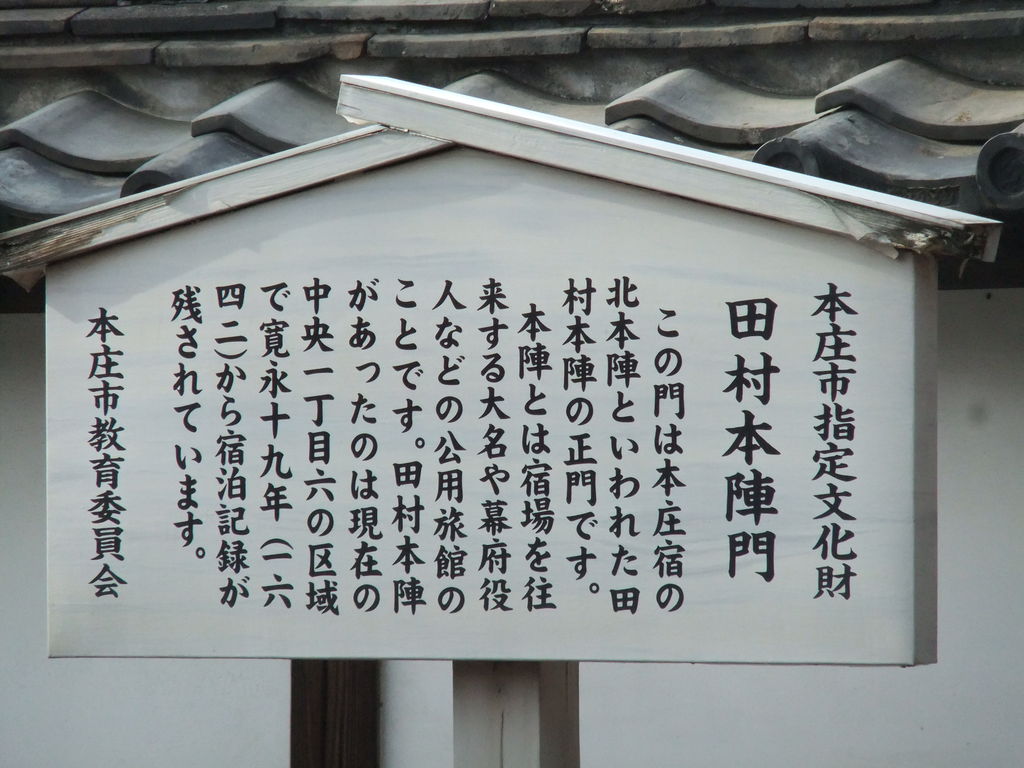 本庄市指定文化財
田村本陣門
この門は本庄宿の
北本陣といわれた田
村本陣の正門です。
本陣とは宿場を往
来する大名や幕府役
人などの公用旅館の
ことです。田村本陣
があったのは現在の
中央一丁目六の区域
で寛永十九年(一六
四二)から宿泊記録が
残されています。
本庄市教育委員会